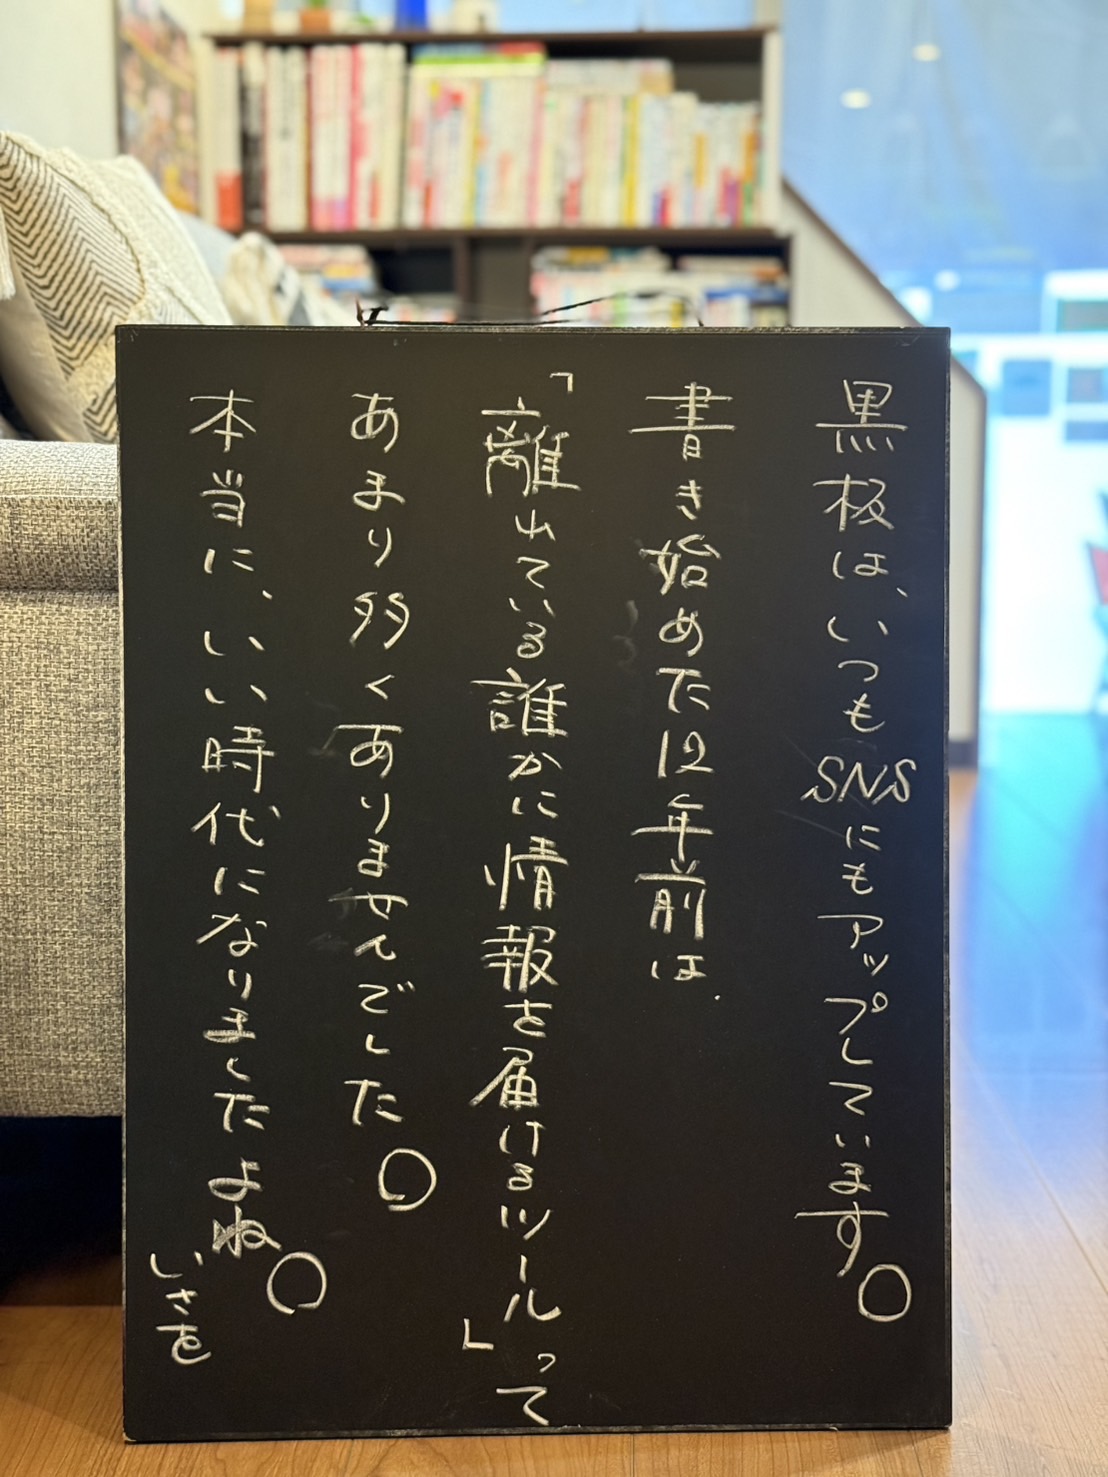 黒板は、いつもSNSにもアップしています。
書き始めた12年前は、
「離れている誰かに情報を届けるツール」って
あまり多くありませんでした。
本当に、いい時代になりましたよね。
いさを